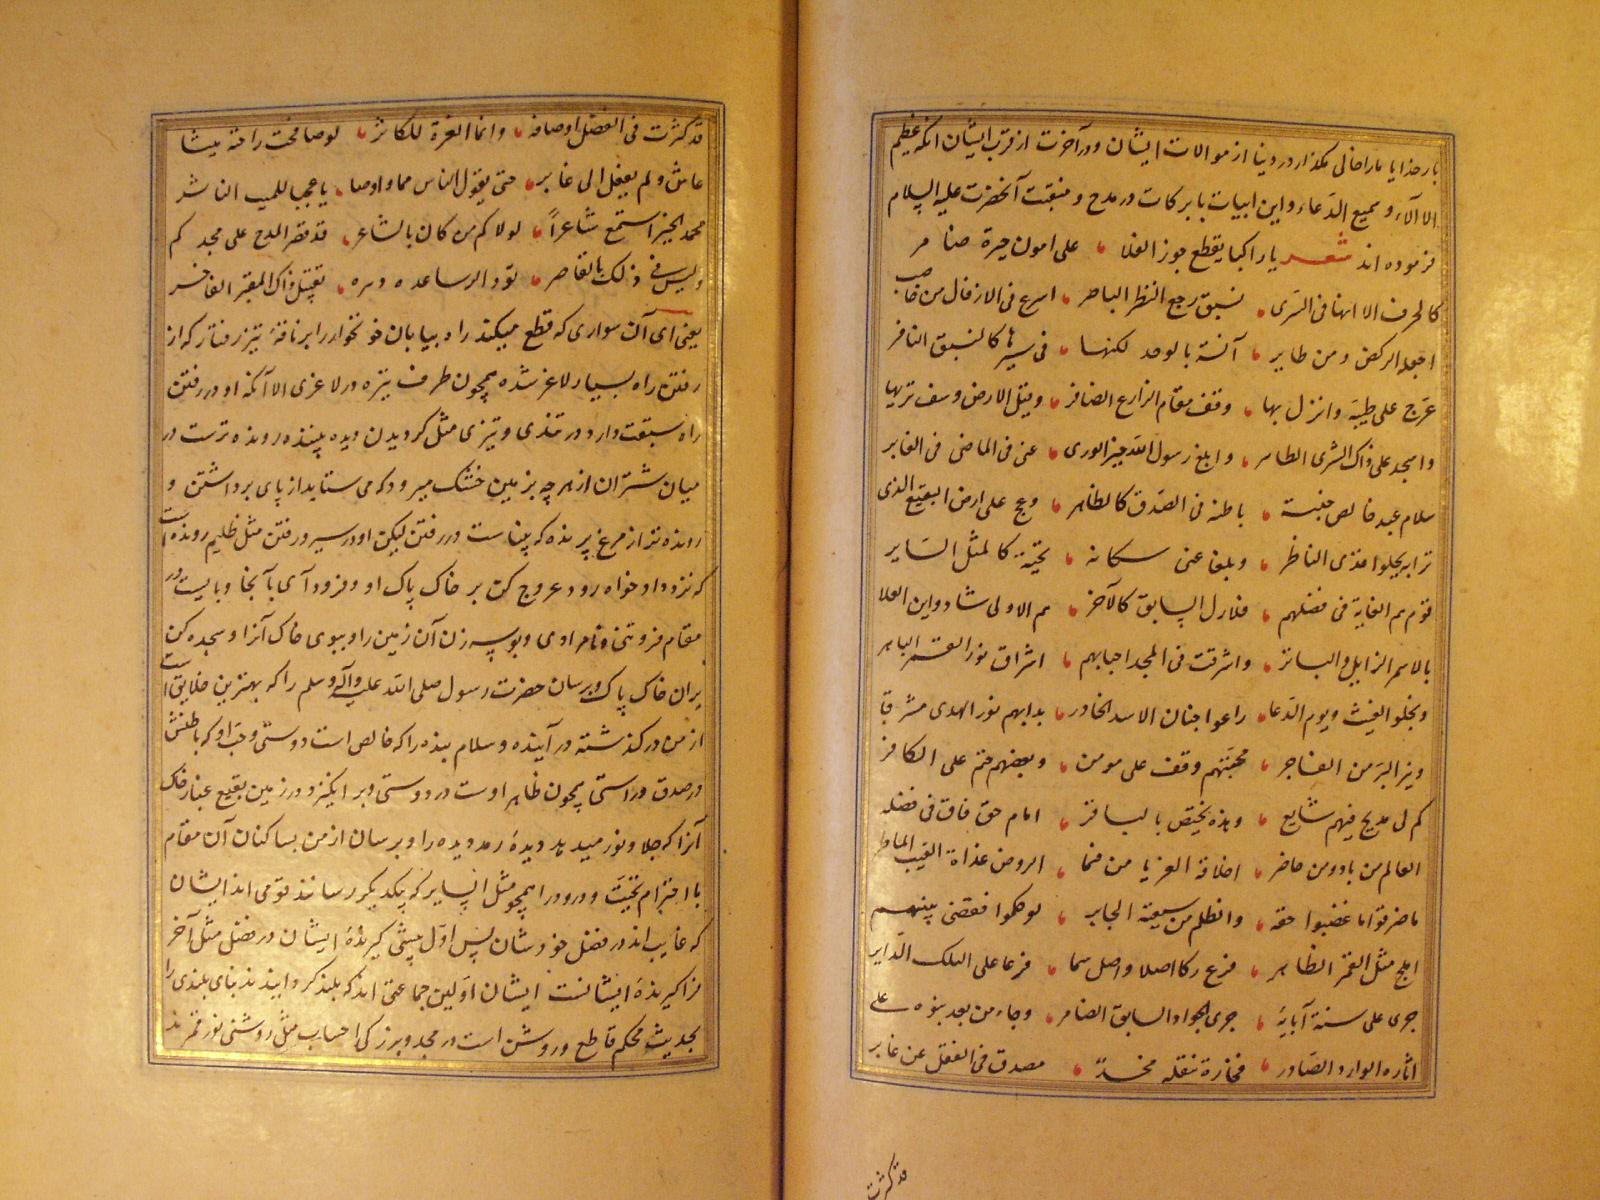 بار خدایا ما را خالی مگذار در دنیا از موالات ایشان و در آخرت از قرب ایشان انکه عظیم
الالآء و سمیع الدعاء و این ابیات بابرکات در مدح و منقبت آنحضرت علیه السلام
فرموده اند شعر یا راکبا یقطع جوز الفلا علی امون جسرة ضامر
کالحرف الا انها فی السری تسبق رجع النظر الباصر اسرع فی الارقال من خاضب
اجفله الرکض و من طایر آنسة بالوحد لکنها فی سیرها کالنسبق النافر
عرج علی طیبة و انزل بها وقف مقام الزارع الصاغر و قبل الارض و سف تربها
و اسجد علی ذاک الثری الطاهر و ابلغ رسول الله خیر الوری عنی فی الماضی فی الغابر
سلام عبد خالص حبه باطنه فی الصدق کالظاهر و عج علی ارض البقیع الذی
ترابه یجلوا قذی الناظر و بلغن عنی سکانه تحیة کالمثل السایر
قوم هم الغایة فی فضلهم فالاول السابق کالآخر هم الاولی شادوا بن العلا
بالاسمر الذابل و الباتر و اشرقت فی المجد احسابهم اشراق نور القمر الباهر
و بخلوا الغیث و یوم الدعا راعوا جنان الاسد الخادر بدا بهم نور الهدی مشرقا
و میز البر من الفاجر محبتهم وقف علی مومن و بغضهم حتم علی الکافر
کم لی مدیح فیهم شایع و هذه یختص بالباقر امام حق فاق فی فضله
العالم من باد و من حاضر اخلاقه الغر یا من فما الروض غداة الغیث الماطر
ما ضر قوما غضبوا حقه و الظلم من سیمة الجایر لو حکموا فقضی بینهم
ابلج مثل القمر الظاهر فرع زکا اصلا و اصل سما فرعا علی الفلک الدایر
جری علی سنة آبایه جری الجواد السابق الضامر و جاء من بعد بنوه علی
اثاره الوارد و الصادر فخاره تنقله مخبرا مصدق فی الفضل عن غابر
قد کثرت
قد کثرت فی الفضل اوصافه و انما العزة للکاثر لو صافحت راحته میتا
عاش و لم یعقل الی غابر حتی یقول الناس مما راوا یا عجبا للمیت الناشر
محمد الخیر استمع شاعرا لولاکم من کان بالشاعر قد قصر المدح علی مجدکم
و لیس فی ذلک بالقاصر
یعنی ای آن سواری که قطع میکند راه بیابان خونخوار را بر ناقهٔ تیز رفتار که از
رفتن راه بسیار لاغر شده همچون طرف نیزه در لاغری الا آنکه او در رفتن
راه سبقت دارد در تندی و تیزی مثل کردیدن دیده بیننده رونده ترست در
میان شتران از هر چه بزمین خشک میرود که می ستاید از پای برداشتن و
رونده تر از مرغ پرنده که پیناست در رفتن لیکن او در سیر و رفتن مثل ظلیم رونده است
که نزد دادخواه رود عروج کن بر خاک پاک او و فرود آی بآنجا و بایست در
مقام فروتنی و نامرادی و بوسه زن آن زمین را و ببوی خاک آنرا و سجده کن
بران خاک پاک و برسان حضرت رسول صلی الله علیه و آله و سلم را که بهترین خلایق است
از من در گذشته در آینده و سلام بنده را که خالص است دوستی و حب او که باطنش
در صدق و راستی همچون ظاهر اوست در دوستی و بر انگیز و در زمین بقیع غبار خاک
آنرا که جلا و نور میدهد دیدهٔ رمد دیده را و برسان از من بساکنان آن مقام
با احترام تحیت و درود را همچو مثل السایر که بیکدیگر رسانند قومی اند ایشان
که غایب اند در فضل خودشان پس اول پیشی گیرندهٔ ایشان در فضل مثل آخر
فراگیرندهٔ ایشانست ایشان اولین جماعتی اند که بلند کردانیدند بنای بلندی را
بحدیث محکم قاطع و روشن است در مجد و بزرکی احساب مثل روشنی نور قمر